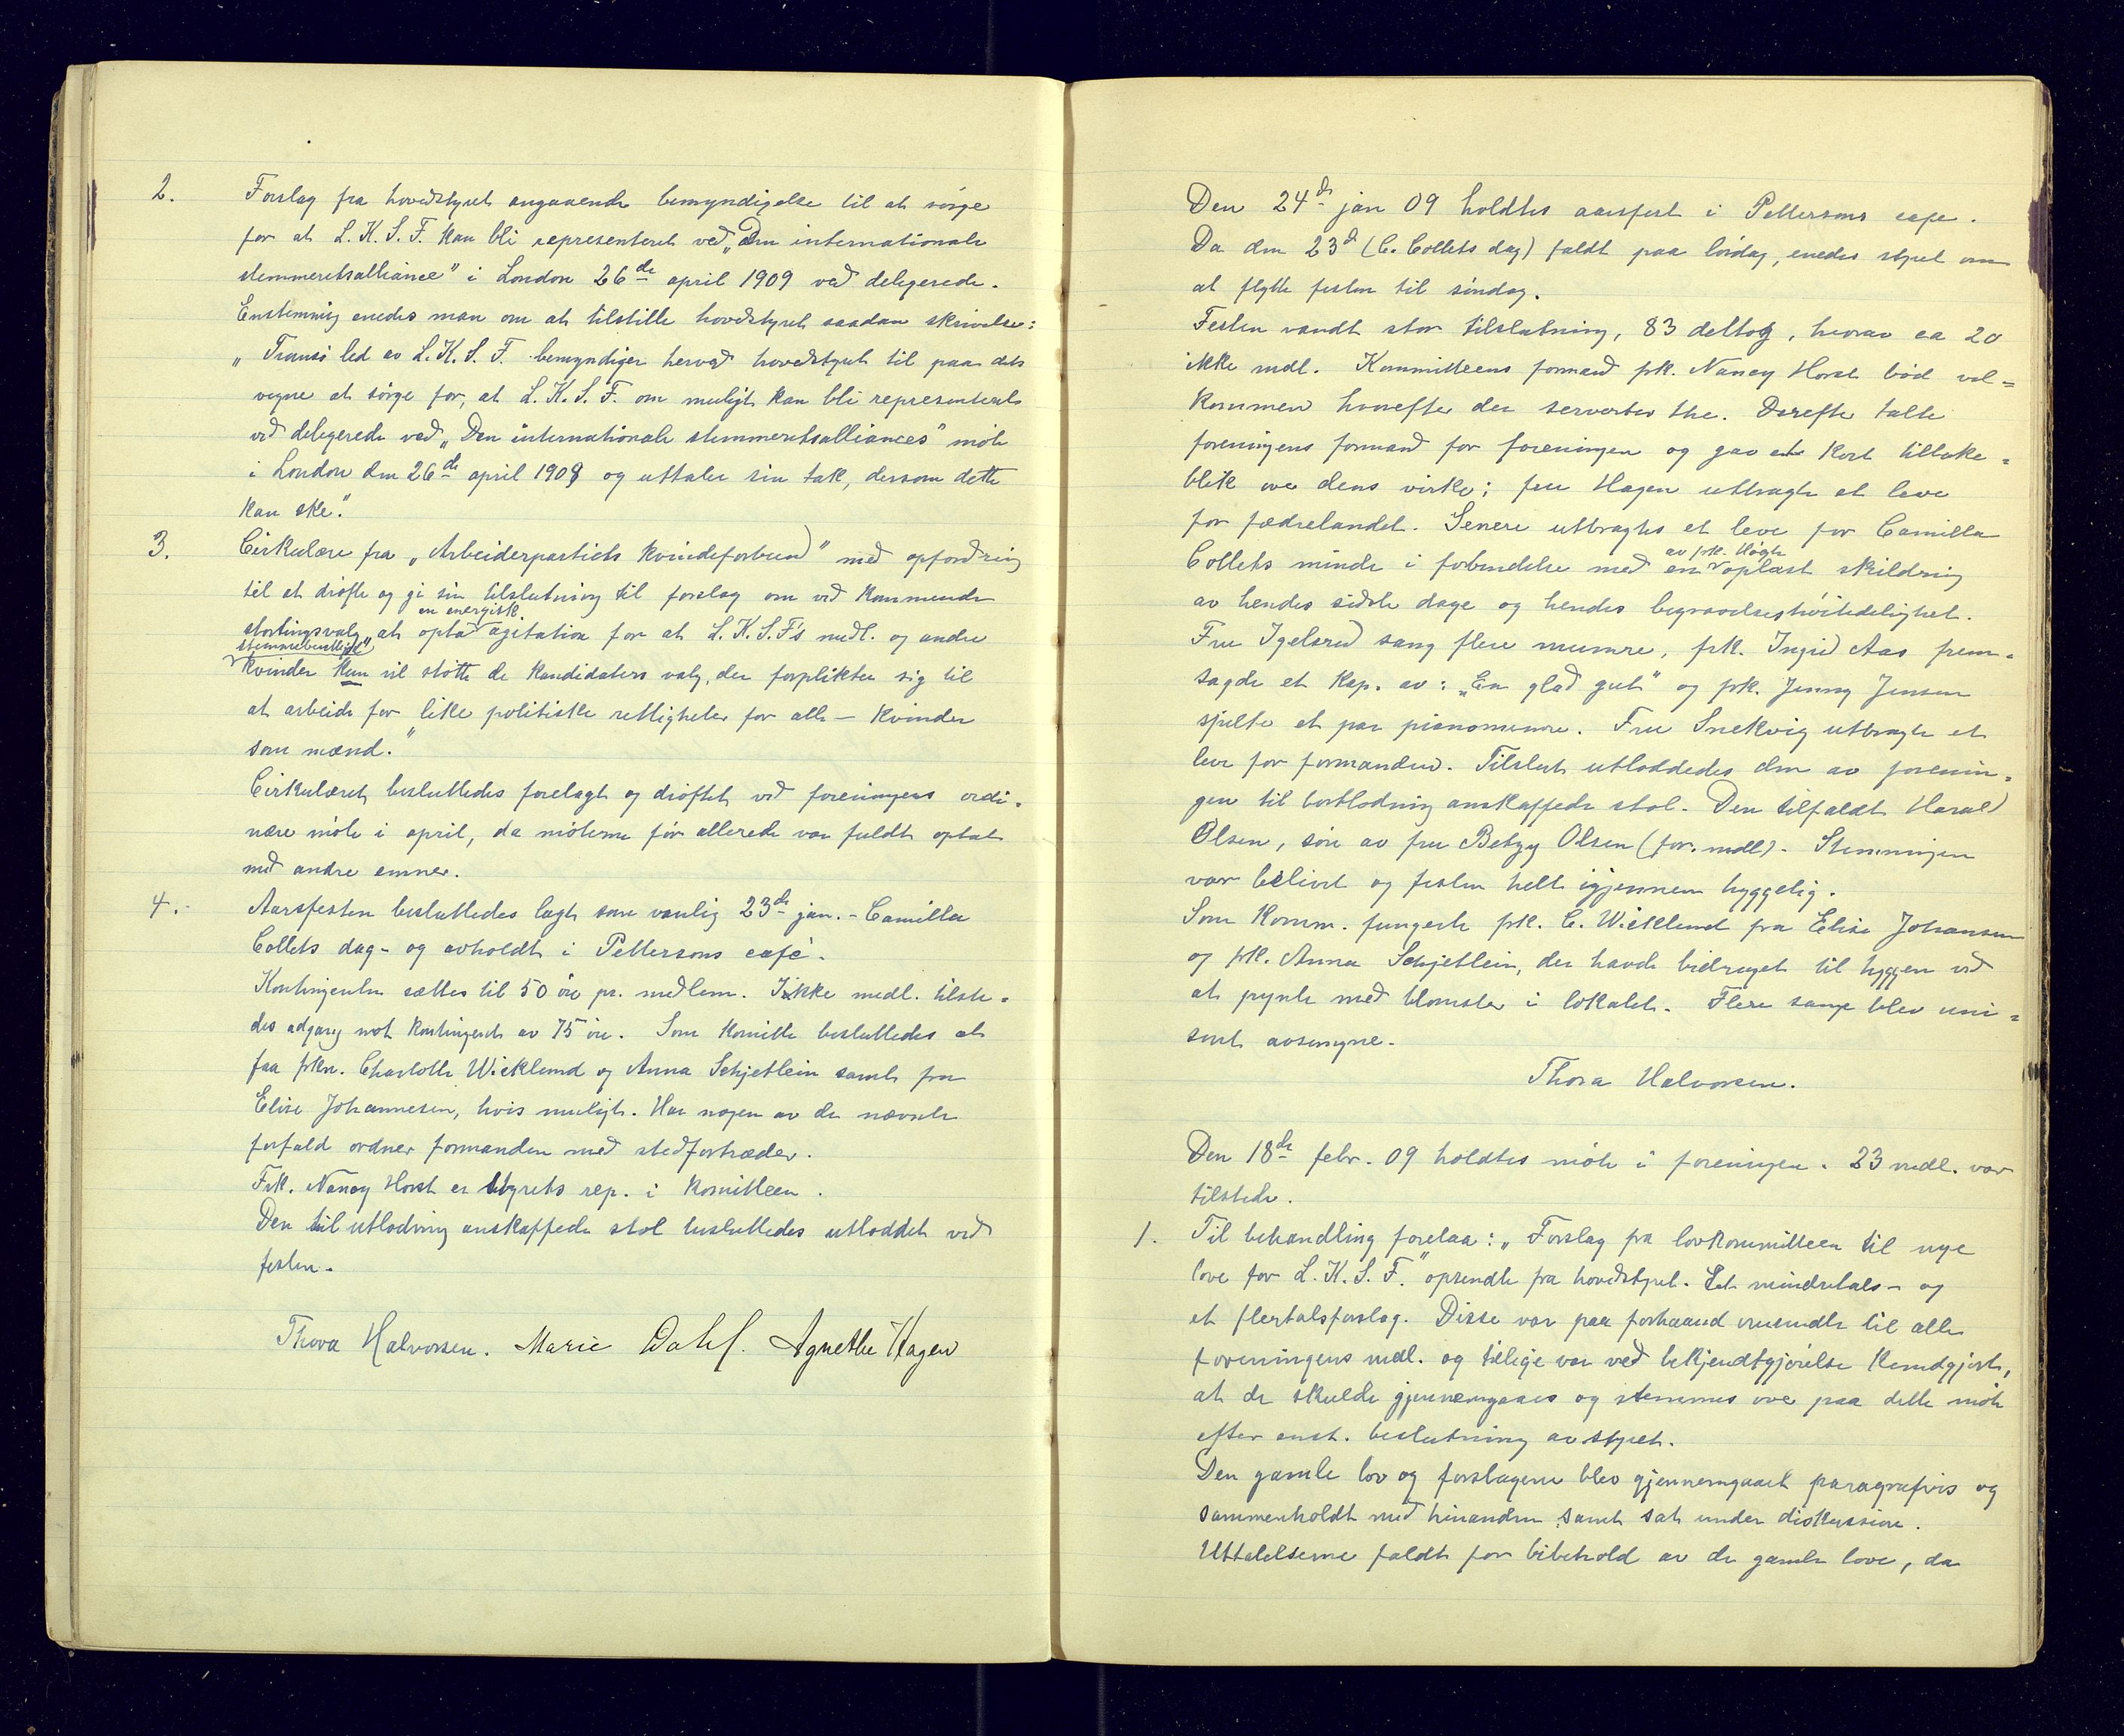 2. Forslag fra hovedstyret angaaende bemyndigelse til at sørge
for at L. K. S. F. kan bli representeret ved „Den internationale
stemmeretsalliance" i London 26de april 1909 ved delegerede.
Enstemmig enedes man om at tilstille hovedstyret saadan skrivelse:
„Tromsø led av L. K. S. F. bemyndiger herved hovedstyret til paa dets
vegne at sørge for, at L. K. S. F. om muligt kan bli representeret
ved delegerede ved „Den internationale stemmeretsalliances" møte
i London den 26de april 1909 og uttaler sin tak, dersom dette
kan ske."
3. Cirkulære fra „Arbeiderpartiets kvindeforbund" med opfordring
til at drøfte og gi sin tilslutning til forslag om ved kommende
en energisk
stortingsvalg „at opta agitation for at L. K. S. F's medl. og andre
stemmeberettigede
kvinder kun vil støtte de kandidaters valg, der forplikter sig til
at arbeide for like politiske rettigheter for alle – kvinder
som mænd."
Cirkulæret besluttedes forelagt og drøftet ved foreningens ordi-
nære møte i april, da møterne før allerede var fuldt optat
med andre emner.
4. Aarsfesten besluttedes lagt som vanlig 23de jan. – Camilla
Collets dag – og avholdt i Pettersons café.
Kontingenten sættes til 50 øre pr. medlem. Ikke medl. tilste-
des adgang mot kontingent av 75 øre. Som komite besluttedes at
faa frkn. Charlotte Wicklund og Anna Schjetlein samt fru
Elise Johannesen, hvis muligt. Har nogen av de nævnte
forfald ordner formanden med stedfortræder.
Frk. Nancy Horst er styrets rep. i komitteen.
Den til utlodning anskaffede stol besluttedes utloddet ved
festen.
Thora Halvorsen. Marie Dahl. Agnethe Hagen
Den 24de jan 09 holdtes aarsfest i Pettersons cafe.
Da den 23d (C. Collets dag) faldt paa lørdag, enedes styret om
at flytte festen til søndag.
Festen vandt stor tilslutning, 83 deltog, hvorav ca 20
ikke medl. Kommitteens formand frk. Nancy Horst bød vel=
kommen hvorefter der servertes the. Derefter talte
foreningens formand for foreningen og gav et kort tilbake=
blik over dens virke; fru Hagen utbragte et leve
for fædrelandet. Senere utbragtes et leve for Camilla
av frk. Høgh
Collets minde i forbindelse med en oplæst skildring
av hendes sidste dage og hendes begravelseshøitidelighet.
Fru Igelsrud sang flere numre, frk. Ingrid Aas frem-
sagde et kap. av: „En glad gut" og frk. Jenny Jensen
spilte et par pianonumre. Fru Snekvig utbragte et
leve for formanden. Tilslut utloddedes den av forenin-
gen til bortlodning anskaffede stol. Den tilfaldt Harald
Olsen, søn av fru Betzy Olsen (for. medl). Stemningen
var belivet og festen helt igjennem hyggelig.
Som komm. fungerte frk. C. Wicklund fru Elise Johansen
og frk. Anna Schjetlein, der havde bidraget til hyggen ved
at pynte med blomster i lokalet. Flere sange blev uni=
sont avsungne.
Thora Halvorsen.
Den 18de febr. 09 holdtes møte i foreningen. 23 medl. var
tilstede.
1. Til behandling forelaa: „Forslag fra lovkommitteen til nye
love for L. K. S. F." opsendte fra hovedstyret. Et mindretals- og
et flertalsforslag. Disse var paa forhaand omsendte til alle
foreningens medl. og tillige var ved bekjendtgjørelse kundgjort,
at de skulde gjennemgaaes og stemmes over paa dette møte
efter enst. beslutning av styret.
Den gamle lov og forslagene blev gjennemgaaet paragrafvis og
sammenholdt med hinanden samt sat under diskussion.
Uttalelserne faldt for bibehold av de gamle love, da